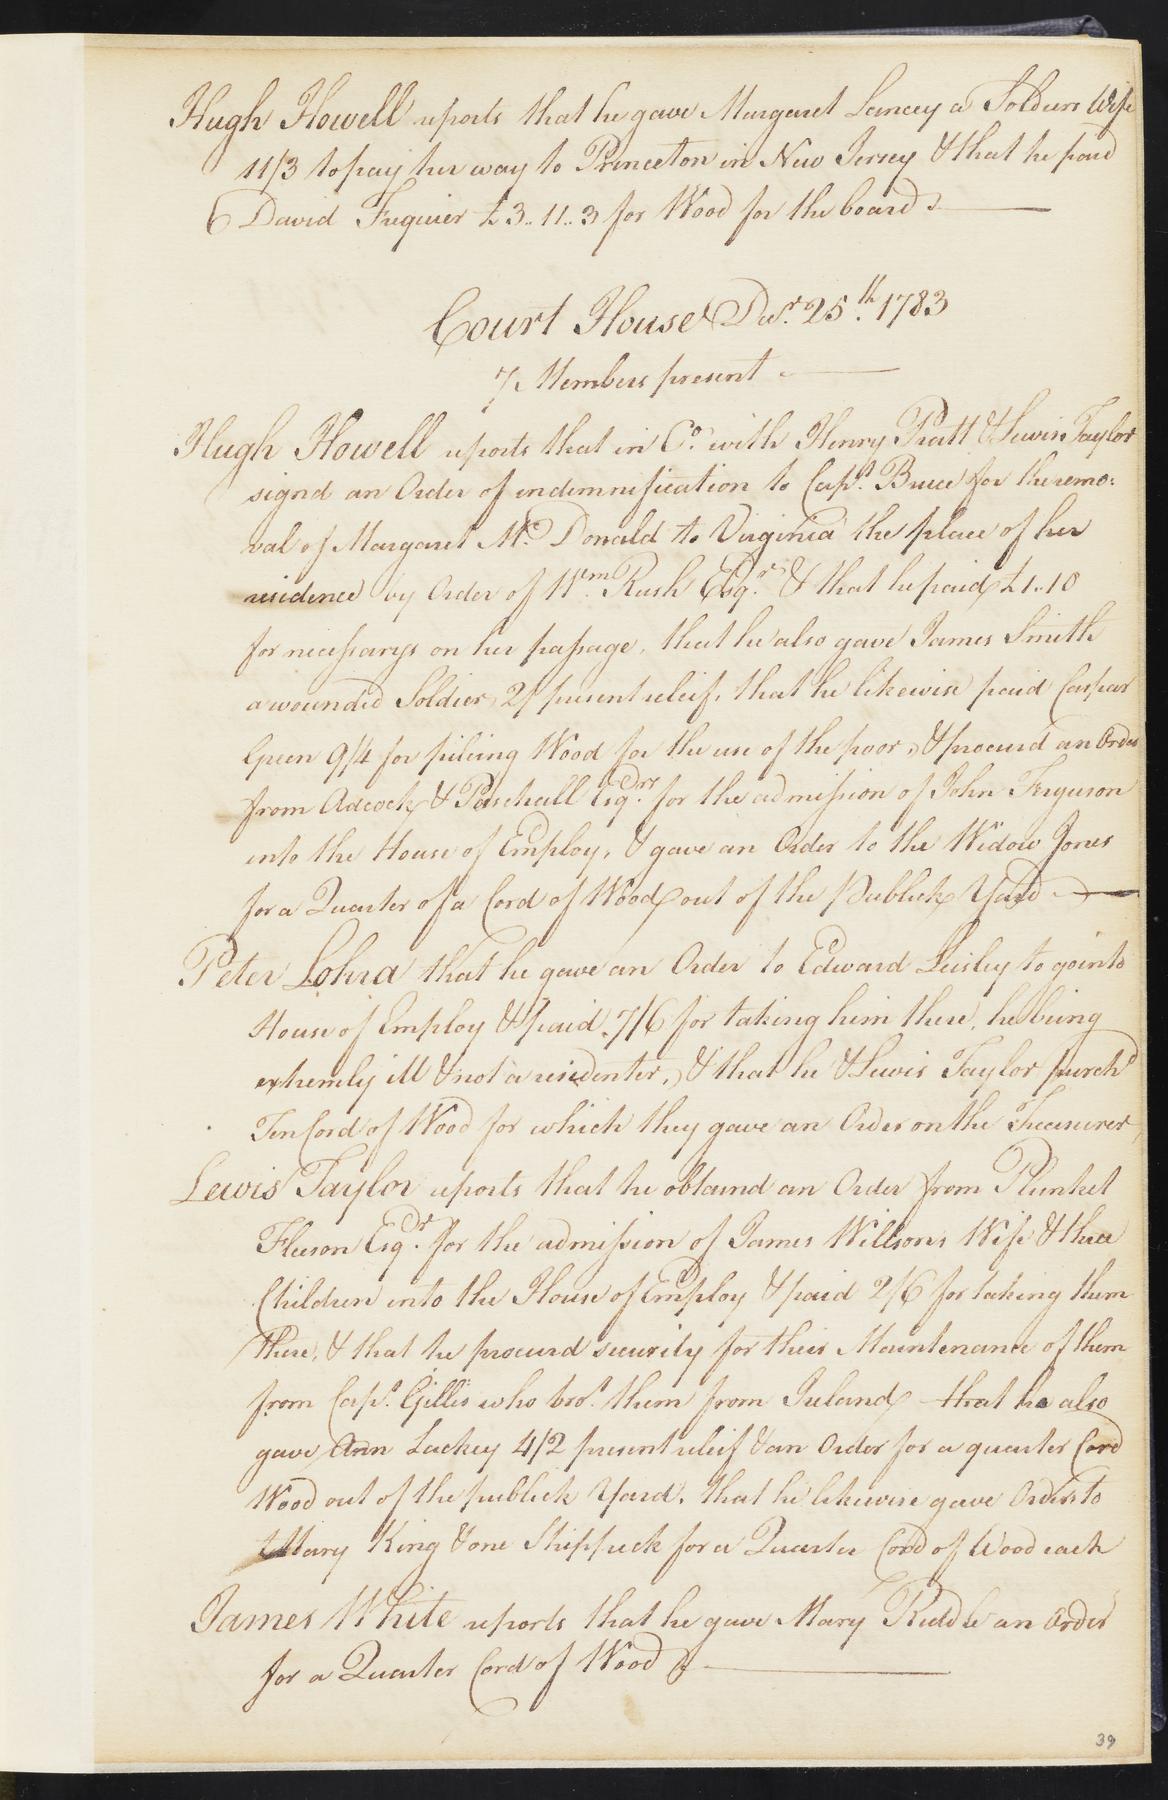 Hugh Howell reports that he gave Margaret Lancey a Soldiers Wife
11/3 to pay her way to Princeton in New Jersey & that he paid
David Frequier £3..11..3 for Wood for the board
Court House Decr. 25th. 1783
7 Members present
Hugh Howell reports that in Co. with Henry Pratt & Lewis Taylor
signd an Order of indemnification to Capt. Bruce for the remo:
val of Margaret Mc. Donald to Virginia the place of her
residence by Order of Wm. Rush Esqr. & that he paid £1..10
for necessarys on her passage, that he also gave James Smith
a wounded Soldier 2/ present releif, that he likewise paid Caspar
Green 9/4 for pileing Wood for the use of the poor, & procurd an Order
from Adcock & Paschall Esqrs. for the admission of John Ferguson
into the House of Employ, & gave an Order to the Widow Jones
for a Quarter of a Cord of Wood out of the Publick Yard
Peter Lohra that he gave an Order to Edward Leisley to go into
House of Employ & paid 7/6 for taking him there, he being
extremly ill & not a residenter, & that he & Lewis Taylor purchd
Ten Cord of Wood for which they gave an Order on the Treasurer,
Lewis Taylor reports that he obtaind an Order from Plunket
Fleeson Esqr. for the admission of James Willsons Wife & three
Children into the House of Employ & paid 2/6 for taking them
there, & that he procurd security for their Maintenance of them
from Capt. Gillis who brot. them from Ireland that he also
gave Ann Lackey 4/2 present releif & an Order for a quarter Cord
Wood out of the publick Yard, that he likewise gave Orders to
Mary King & one Skippack for a Quarter Cord of Wood each
James White reports that he gave Mary Riddle an Order
for a Quarter Cord of Wood
39